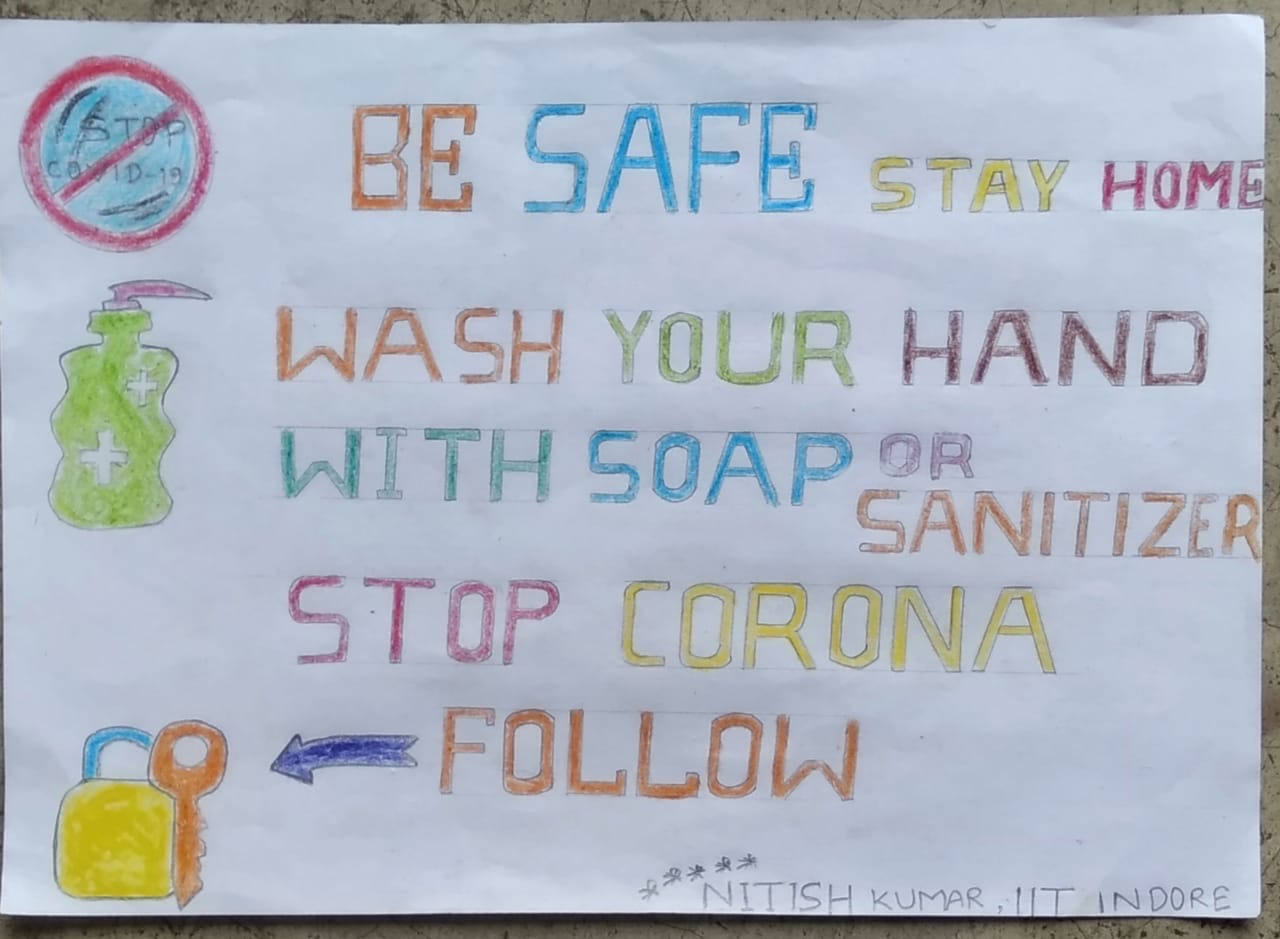 STOP
COVID-19
BE SAFE STAY HOME
WASH YOUR HAND
WITH SOAP OR
SANITIZER
STOP CORONA
FOLLOW
***** NITISH KUMAR, IIT INDORE